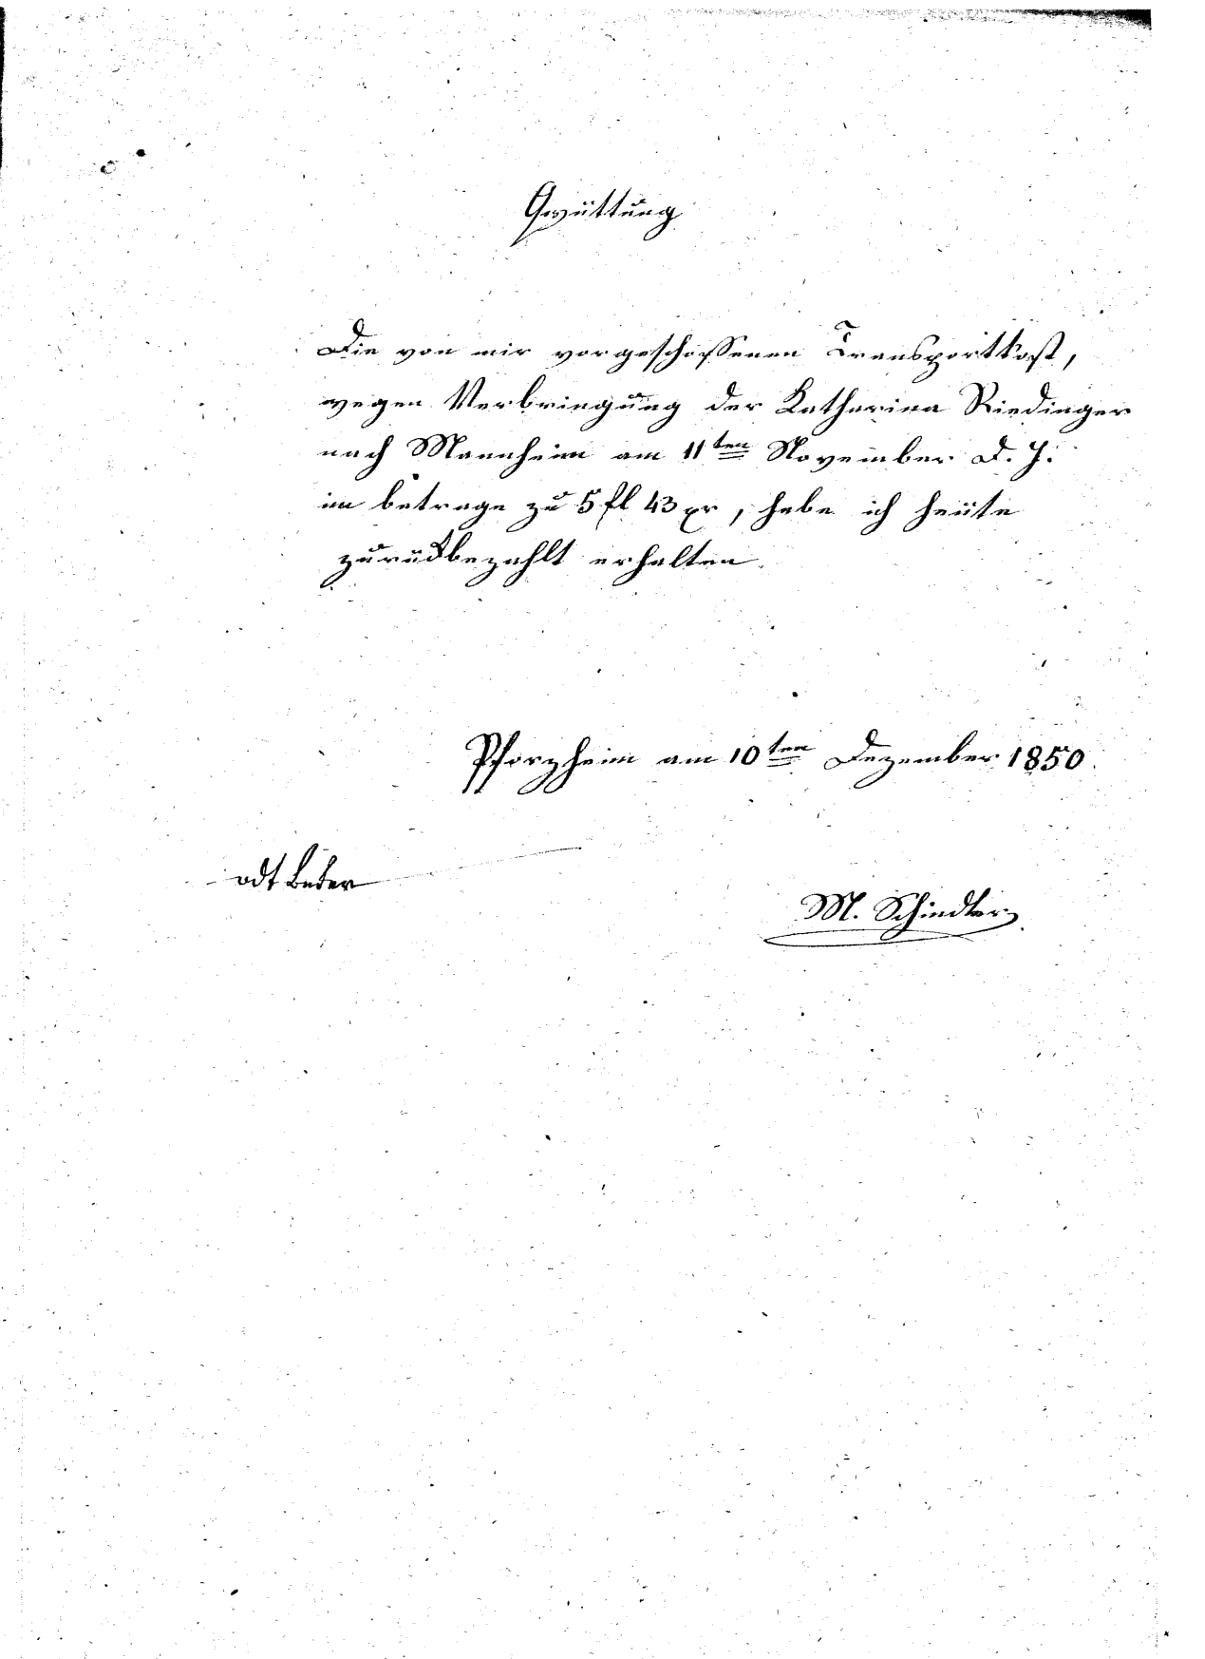 Quittung
Die von mir vorgeschossenen Transportkost,
wegen Verbringung der Katharina Riedinger
nach Mannheim am 11ten November d. J.
im betrage zu 5 fl 43 xr, habe ich heute
zurückbezahlt erhalten.
Pforzheim am 10ten Dezember 1850.
vdt
M. Schindler